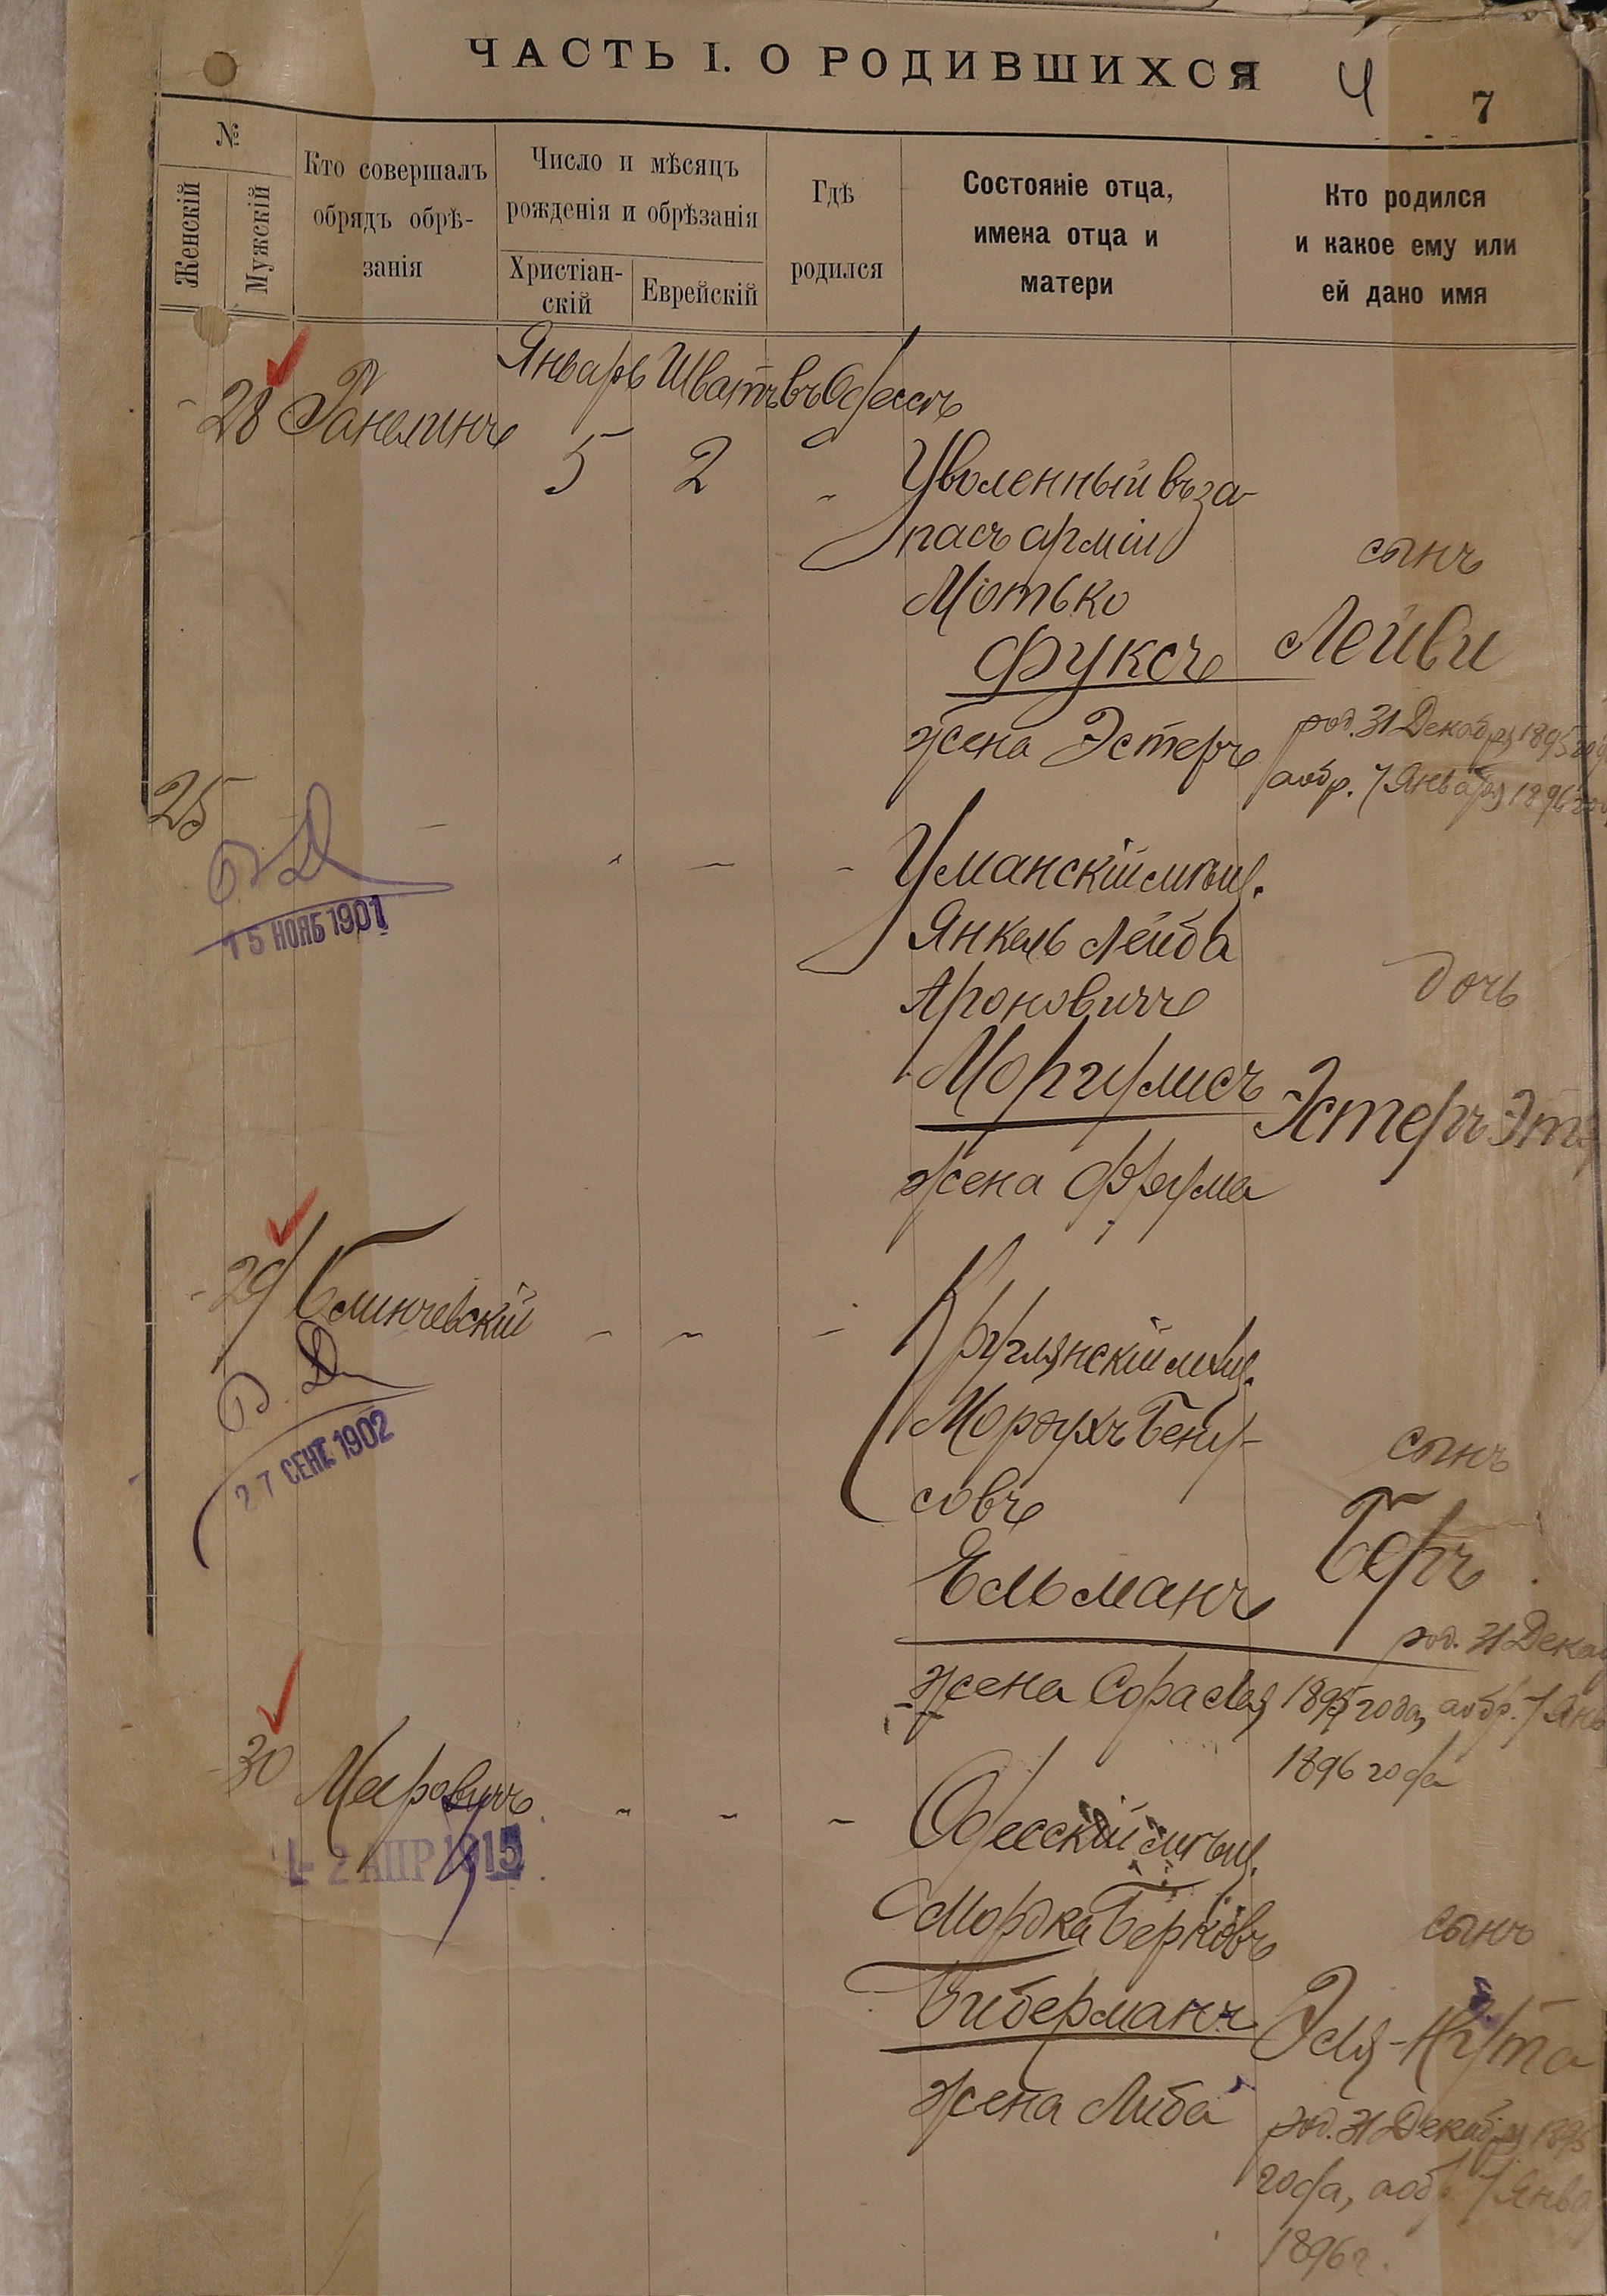 ЧАСТЬ I. О РОДИВШИХСЯ
4
7
№
Женскій
Мужскій
Кто совершалъ
обрядъ обрѣ-
занія
Число и мѣсяцъ
рожденія и обрѣзанія
Христіан-
скій
Еврейскій
Гдѣ
родился
Состояніе отца,
имена отца и
матери
Кто родился
и какое ему или
ей дано имя
Январь Шватъ въ Одессѣ
28
5 2
Уволенный въ за-
пасъ арміи
Мотько
Фуксъ
жена Эстеръ
сынъ
Лейви
род. 31 Декабря 1895
а обр. 7 Января 1896
25
15 НОЯБ 1901
Уманскій мѣщ.
Янкель Лейба
Ароновичъ
Моргулисъ
жена Фрума
дочь
Эстеръ
29 Блинчевскій
27 СЕНТ. 1902
Круглянскій мѣщ.
Мордухъ Бену-
совъ
Ельманъ
жена Сора Лея
сынъ
Беръ
род. 31
1895 года, а обр. 7
1896 года
30 Меровичъ
2 АПР 1915
Одесскій мѣщ.
Мордка Берковъ
Биберманъ
жена Либа
сынъ
Эля-Нута
род. 31 Декабря 1895
года, а обр. 7
1896 г.